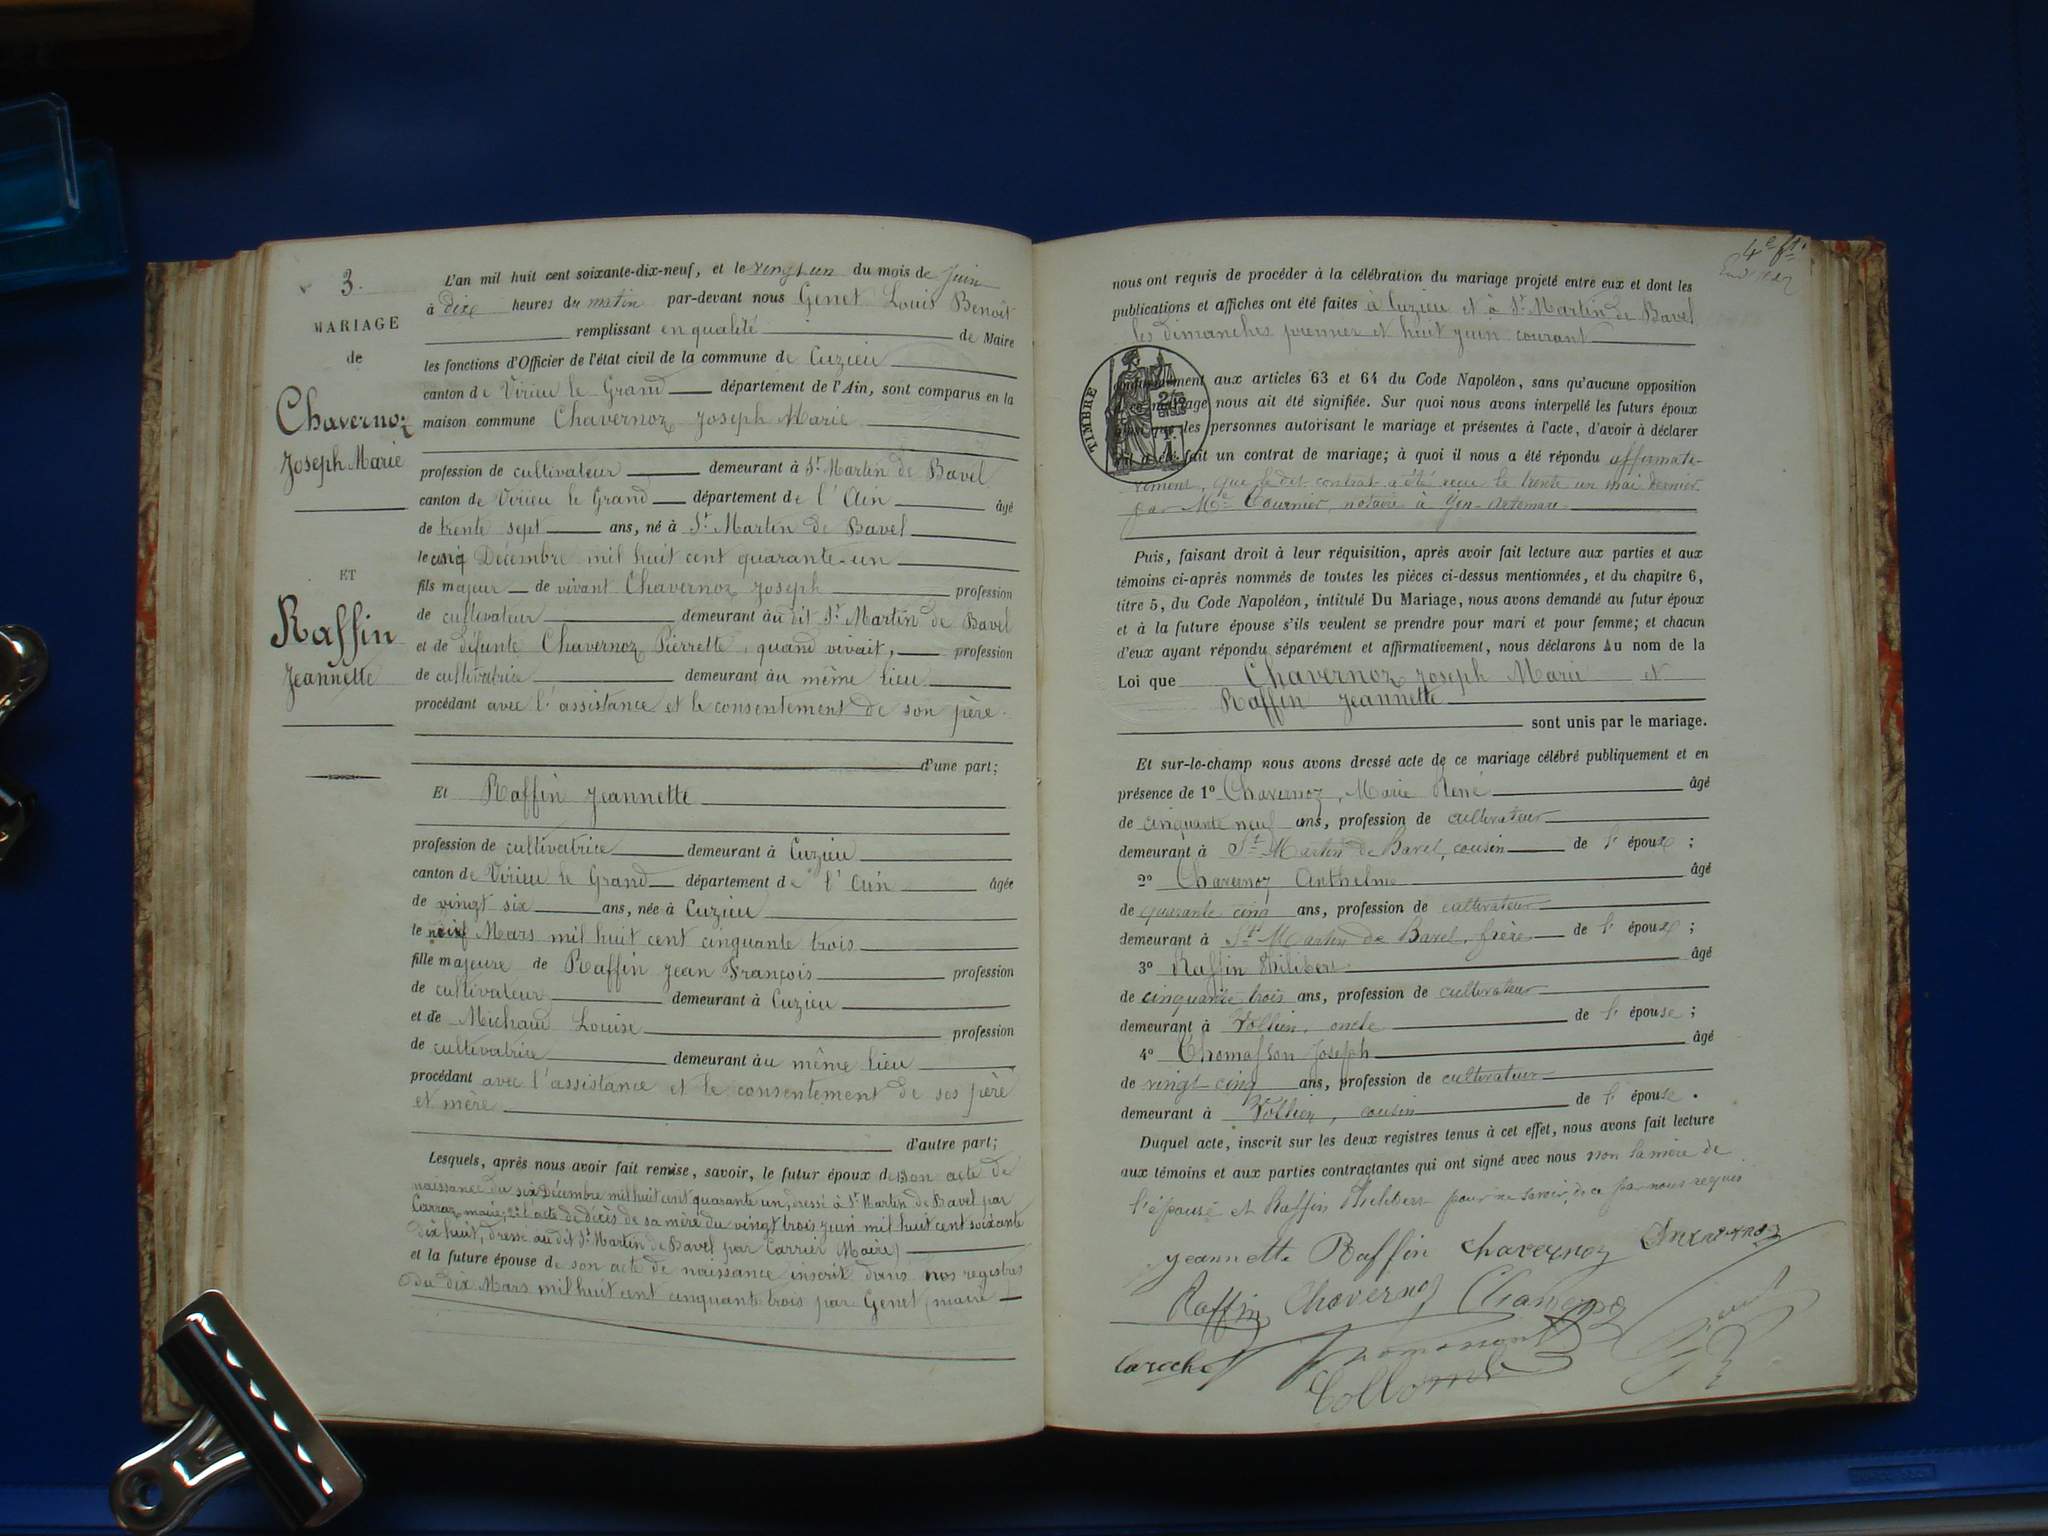 3.
MARIAGE
de
Chavernoz
Joseph Marie
ET
Raffin
Jeannette
L'an mil huit cent soixante-dix-neuf, et le vingt un du mois de Juin
à dix heures du matin par-devant nous Genet Louis Benoit
remplissant en qualité de Maire
les fonctions d'Officier de l'état civil de la commune de Cuzieu
canton de Virieu le Grand département de l'Ain, sont comparus en la
maison commune Chavernoz Joseph Marie
profession de cultivateur demeurant à St Martin de Bavel
canton de Virieu le Grand département de l'Ain âgé
de trente sept ans, né à St Martin de Bavel
le cinq Décembre mil huit cent quarante-un
fils majeur de vivant Chavernoz Joseph profession
de cultivateur demeurant àu dit St Martin de Bavel
et de défunte Chavernoz Pierrette, quand vivait, profession
de cultivatrice demeurant àu même lieu
procédant avec l'assistance et le consentement de son père.
d'une part;
Et Raffin Jeannette
profession de cultivatrice demeurant à Cuzieu
canton de Virieu le Grand département de l'Ain âgée
de vingt six ans, née à Cuzieu
le neuf Mars mil huit cent cinquante trois
fille majeure de Raffin Jean François profession
de cultivateur demeurant à Cuzieu
et de Michaud Louise profession
de cultivatrice demeurant àu même lieu
procédant avec l'assistance et le consentement de ses père
et mère
d'autre part;
Lesquels, après nous avoir fait remise, savoir, le futur époux de son acte de
naissance du six Décembre mil huit cent quarante un, dressé à St Martin de Bavel par
Carraz maire; 2° l'acte de décès de sa mère du vingt trois juin mil huit cent soixante
dix huit, dressé au dit St Martin de Bavel par Carrier Maire)
et la future épouse de son acte de naissance inscrit dans nos registres
du dix Mars mil huit cent cinquante trois par Genet, maire
4e ft.
nous ont requis de procéder à la célébration du mariage projeté entre eux et dont les
publications et affiches ont été faites à Cuzieu et à St Martin de Bavel
les dimanches premier et huit juin courant
TIMBRE
conformément aux articles 63 et 64 du Code Napoléon, sans qu'aucune opposition
à ce mariage nous ait été signifiée. Sur quoi nous avons interpellé les futurs époux
ainsi que les personnes autorisant le mariage et présentes à l'acte, d'avoir à déclarer
s'il a été fait un contrat de mariage; à quoi il nous a été répondu affirmati-
vement, que le dit contrat a été reçu le trente un mai dernier
par Me Tournier, notaire à Yon-Artemare
Puis, faisant droit à leur réquisition, après avoir fait lecture aux parties et aux
témoins ci-après nommés de toutes les pièces ci-dessus mentionnées, et du chapitre 6,
titre 5, du Code Napoléon, intitulé Du Mariage, nous avons demandé au futur époux
et à la future épouse s'ils veulent se prendre pour mari et pour femme; et chacun
d'eux ayant répondu séparément et affirmativement, nous déclarons Au nom de la
Loi que Chavernoz Joseph Marie et
Raffin Jeannette
sont unis par le mariage.
Et sur-le-champ nous avons dressé acte de ce mariage célébré publiquement et en
présence de 1° Chavernoz, Marie René âgé
de cinquante neuf ans, profession de cultivateur
demeurant à St Martin de Bavel, cousin de l'époux;
2° Chavernoz Anthelme âgé
de quarante cinq ans, profession de cultivateur
demeurant à St Martin de Bavel, frère de l'époux;
3° Raffin Philibert âgé
de cinquante trois ans, profession de cultivateur
demeurant à Vollien, oncle de l'épouse;
4° Thomasson Joseph âgé
de vingt cinq ans, profession de cultivateur
demeurant à Vollien, cousin de l'épouse.
Duquel acte, inscrit sur les deux registres tenus à cet effet, nous avons fait lecture
aux témoins et aux parties contractantes qui ont signé avec nous non la mère de
l'épouse et Raffin Philibert pour ne savoir, de ce par nous requis
Jeannette Raffin Chavernoz Chavernoz
Raffin Chavernoz Chavernoz
Laroche Thomasson Genet
Collomb